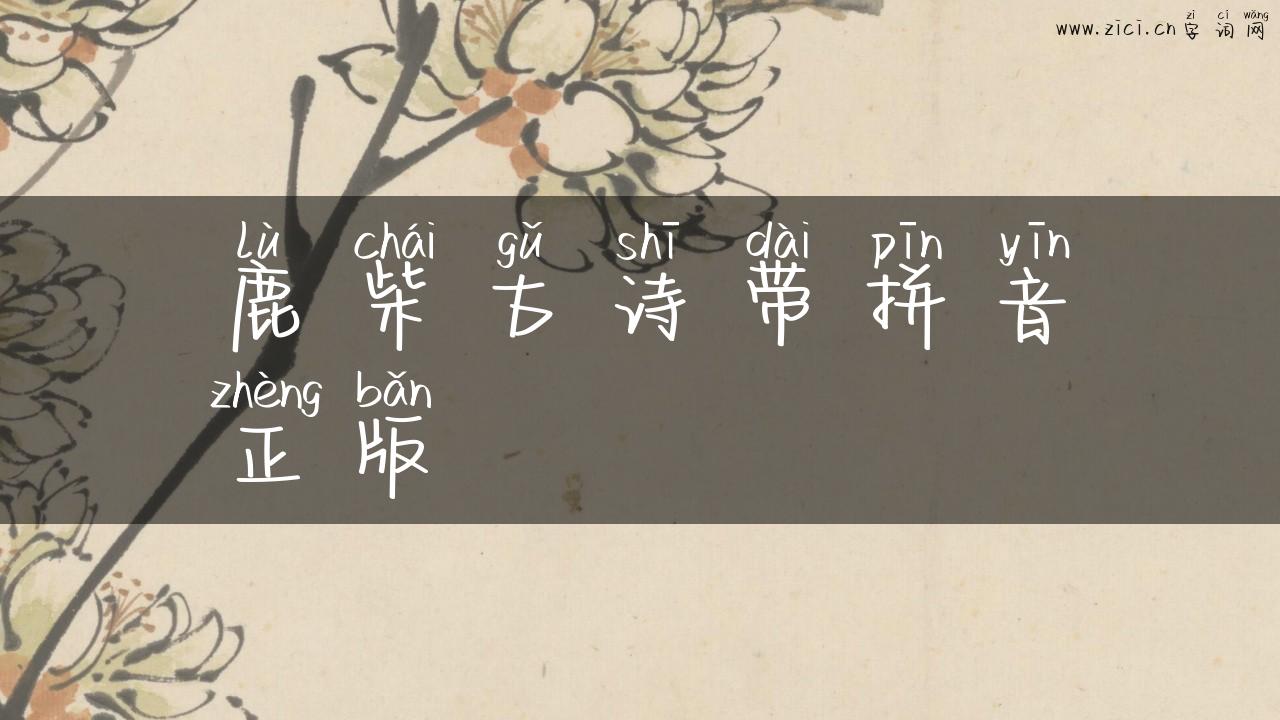 zì cí wǎng
www.zici.cn 字词网
lù chái gǔ shī dài pīn yīn
鹿柴古诗带拼音
zhèng bǎn
正版